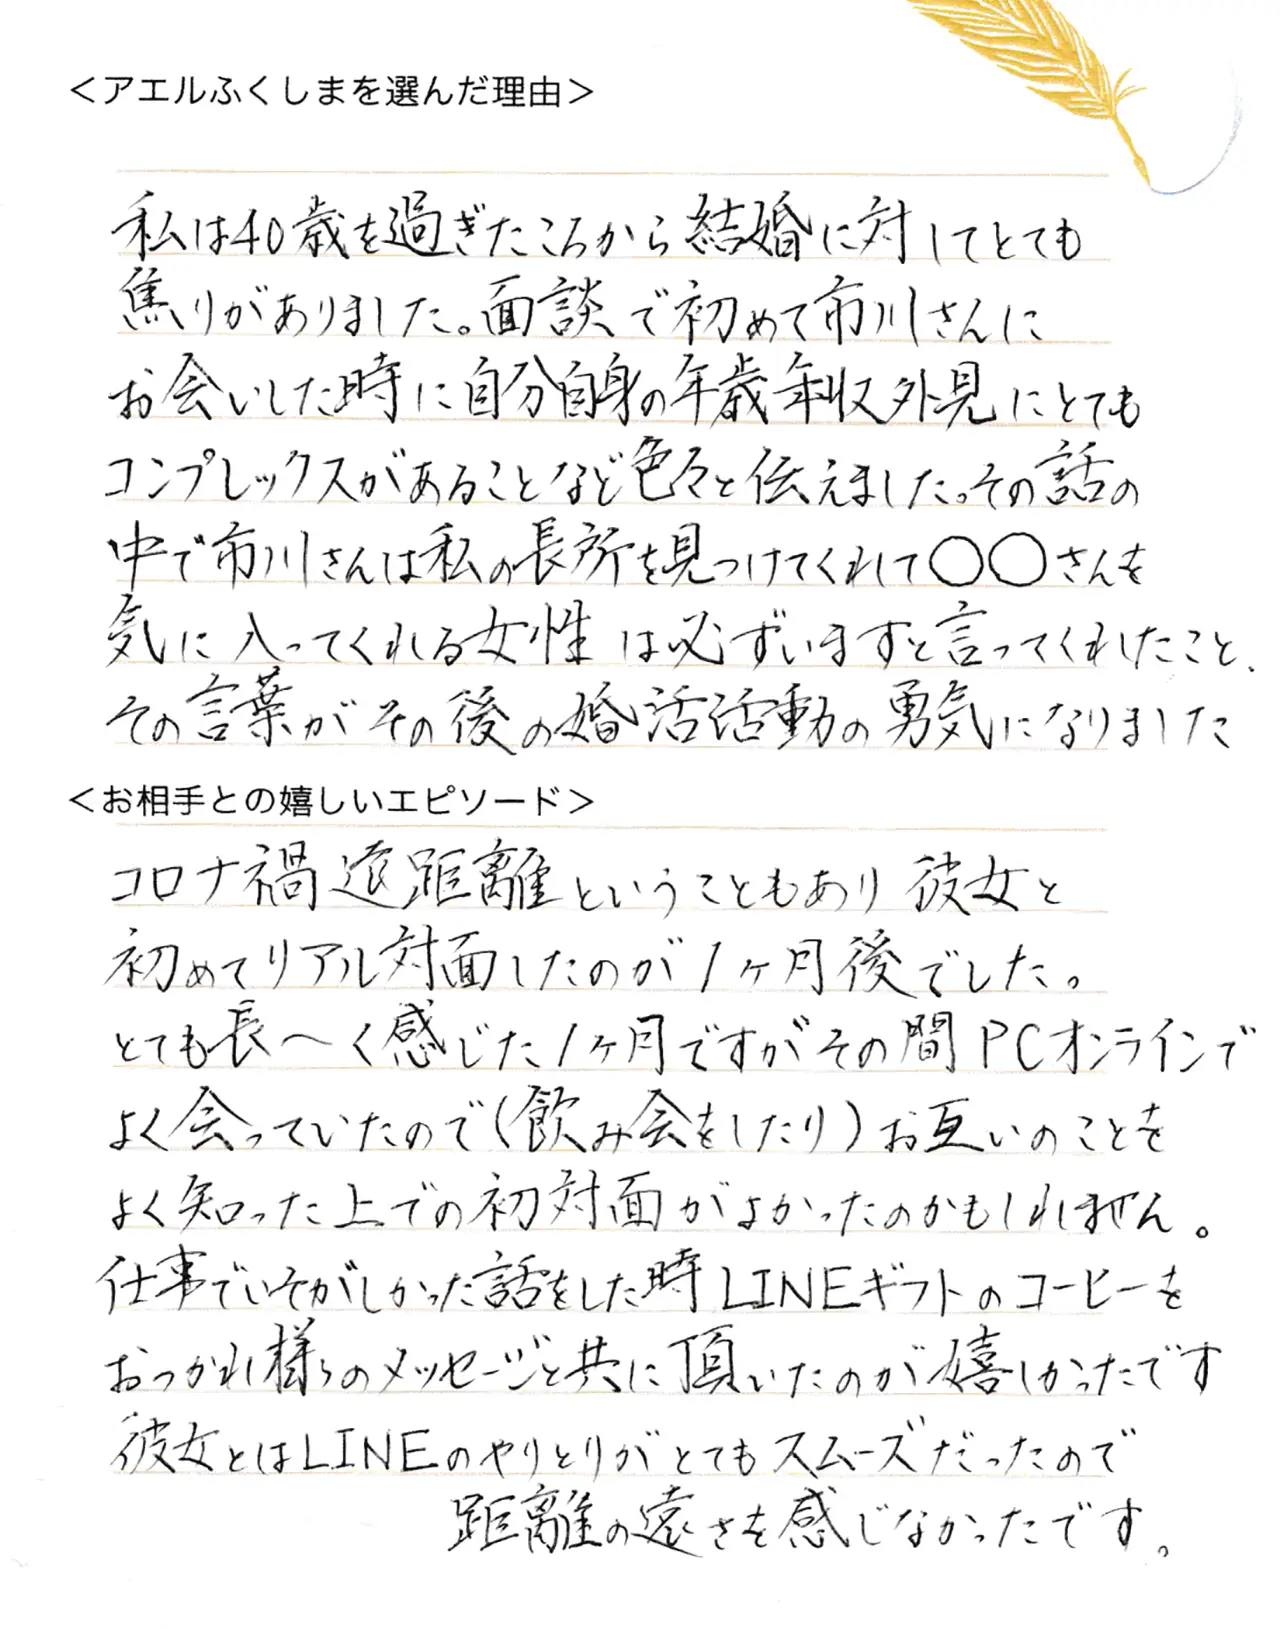 ＜アエルふくしまを選んだ理由＞
私は40歳を過ぎたころから結婚に対してとても
焦りがありました。面談で初めて市川さんに
お会いした時に自分自身の年歳年収外見にとても
コンプレックスがあることなど色々と伝えました。その話の
中で市川さんは私の長所を見つけてくれて〇〇さんを
気に入ってくれる女性は必ずいますと言ってくれたこと、
その言葉がその後の婚活活動の勇気になりました
＜お相手との嬉しいエピソード＞
コロナ禍遠距離ということもあり彼女と
初めてリアル対面したのが1ヶ月後でした。
とても長〜く感じた1ヶ月ですがその間PCオンラインで
よく会っていたので(飲み会をしたり)お互いのことを
よく知った上での初対面がよかったのかもしれません。
仕事でいそがしかった話をした時LINEギフトのコーヒーを
おつかれ様のメッセージと共に頂いたのが嬉しかったです
彼女とはLINEのやりとりがとてもスムーズだったので
距離の遠さを感じなかったです。